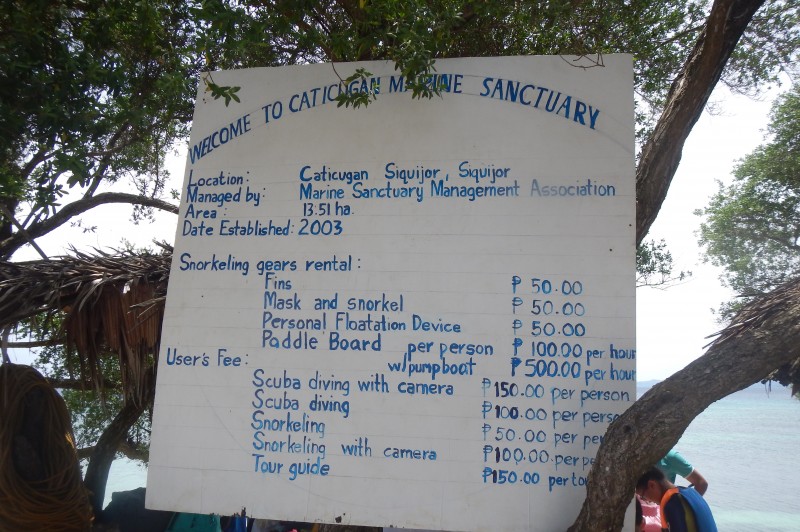 WELCOME TO CATICUGAN MARINE SANCTUARY
Location: Caticugan Siquijor, Siquijor
Managed by: Marine Sanctuary Management Association
Area: 13.51 ha.
Date Established: 2003
Snorkeling gears rental:
Fins ₱ 50.00
Mask and snorkel ₱ 50.00
Personal Floatation Device ₱ 50.00
Paddle Board per person ₱ 100.00 per hour
w/pumpboat ₱ 500.00 per hour
User's Fee:
Scuba diving with camera ₱150.00 per person
Scuba diving ₱100.00 per person
Snorkeling ₱50.00 per
Snorkeling with camera ₱100.00 per
Tour guide ₱150.00 per